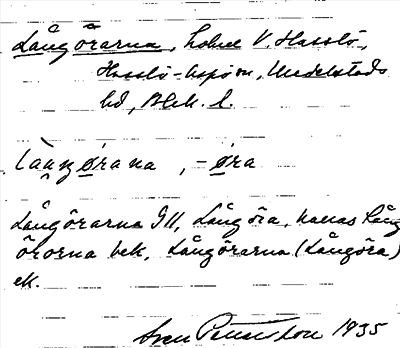 Långörarna, holme V. Hasslö,
Hasslö-Aspö sn, Medelstads
hd, Blek. l.
låŋørana, -øra
Långörarna GII, Långöra, kallas Lång
örorna bek, Långörarna (Långöra)
ek.
Sven Benson 1935